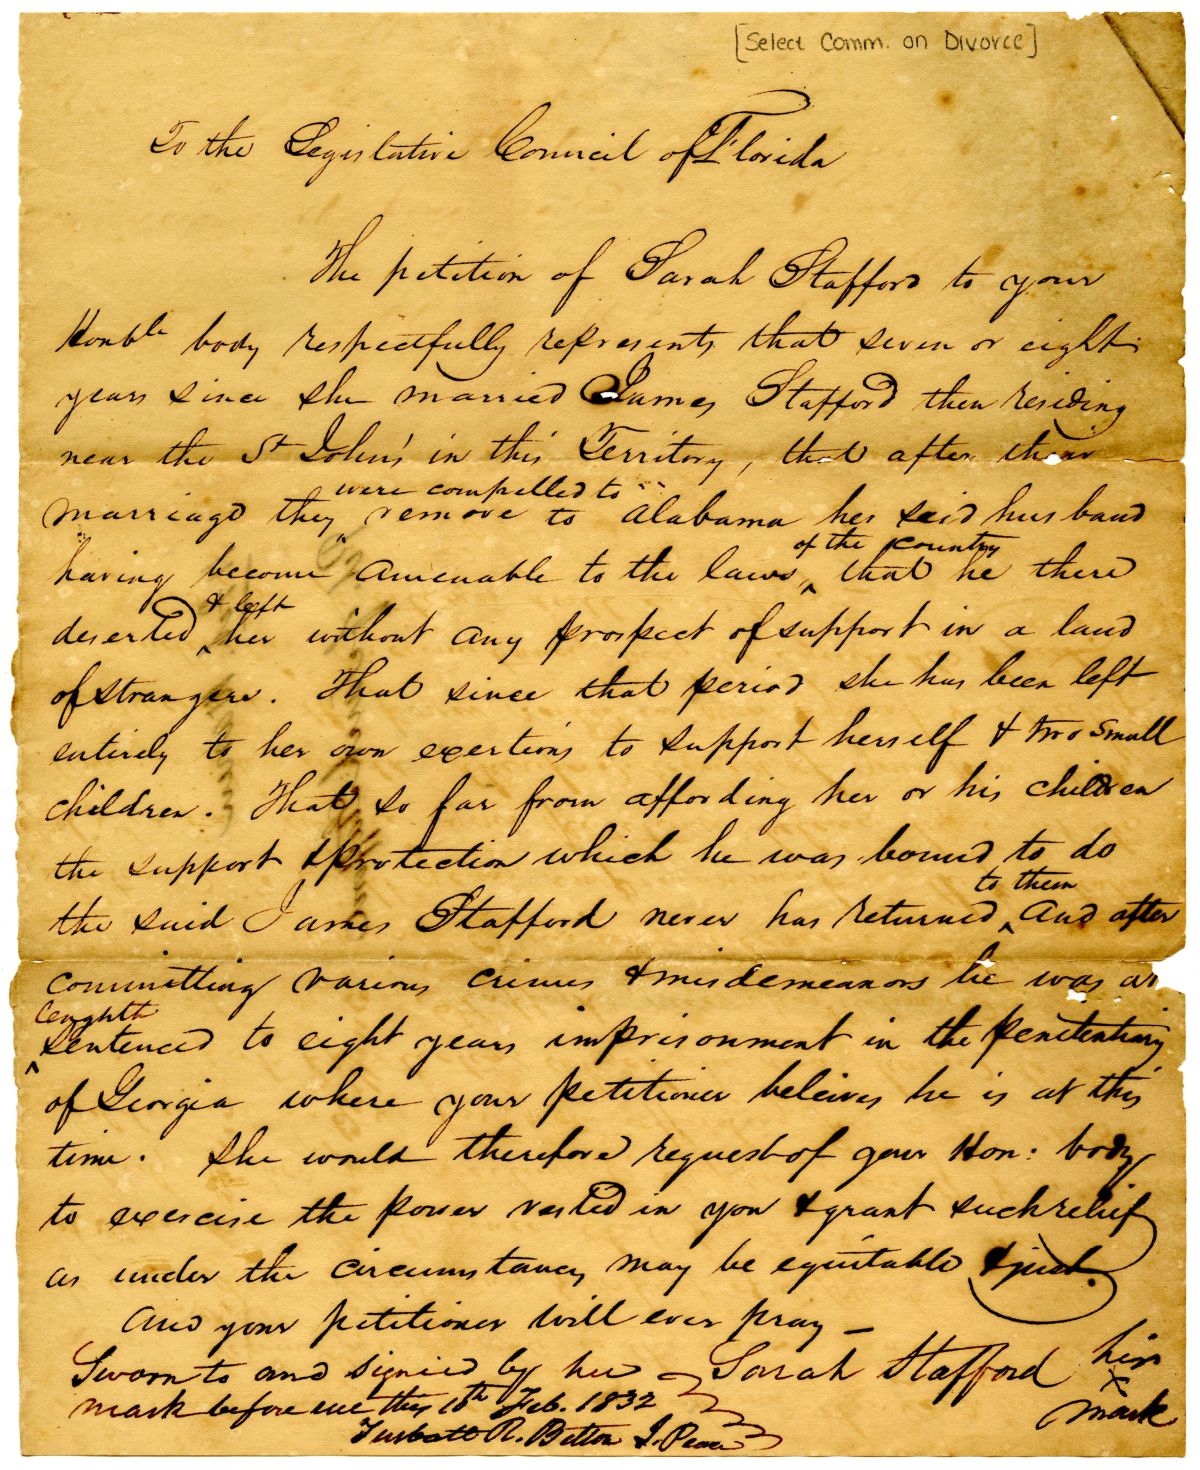 [Select Comm. on Divorce]
To the Legislative Council of Florida
The petition of Sarah Stafford to your
Honble body respectfully represents that seven or eight
years since she married James Stafford then residing
near the St John's in this Territory, that after their
were compelled to
marriage they remove to Alabama her said husband
of the country
having become amenable to the laws ^ that he there
& left
deserted ^ her without any prospect of support in a land
of strangers. That since that period she has been left
entirely to her own exertions to support herself & two small
children. That so far from affording her or his children
the support & protection which he was bound to do
to them
the said James Stafford never has returned ^ And after
committing various crimes & misdemeanors he was at
lenghth
^ sentenced to eight years imprisonment in the penitentiary
of Georgia where your petitioner beleives he is at this
time. She would therefore request of your Hon: body
to exercise the power vested in you & grant such relief
as under the circumstances may be equitable & just.
And your petitioner will ever pray —
Sworn to and signed by her Sarah Stafford her
mark before me this 10th Feb. 1832 x mark
Turbutt R. Betton J. Peace